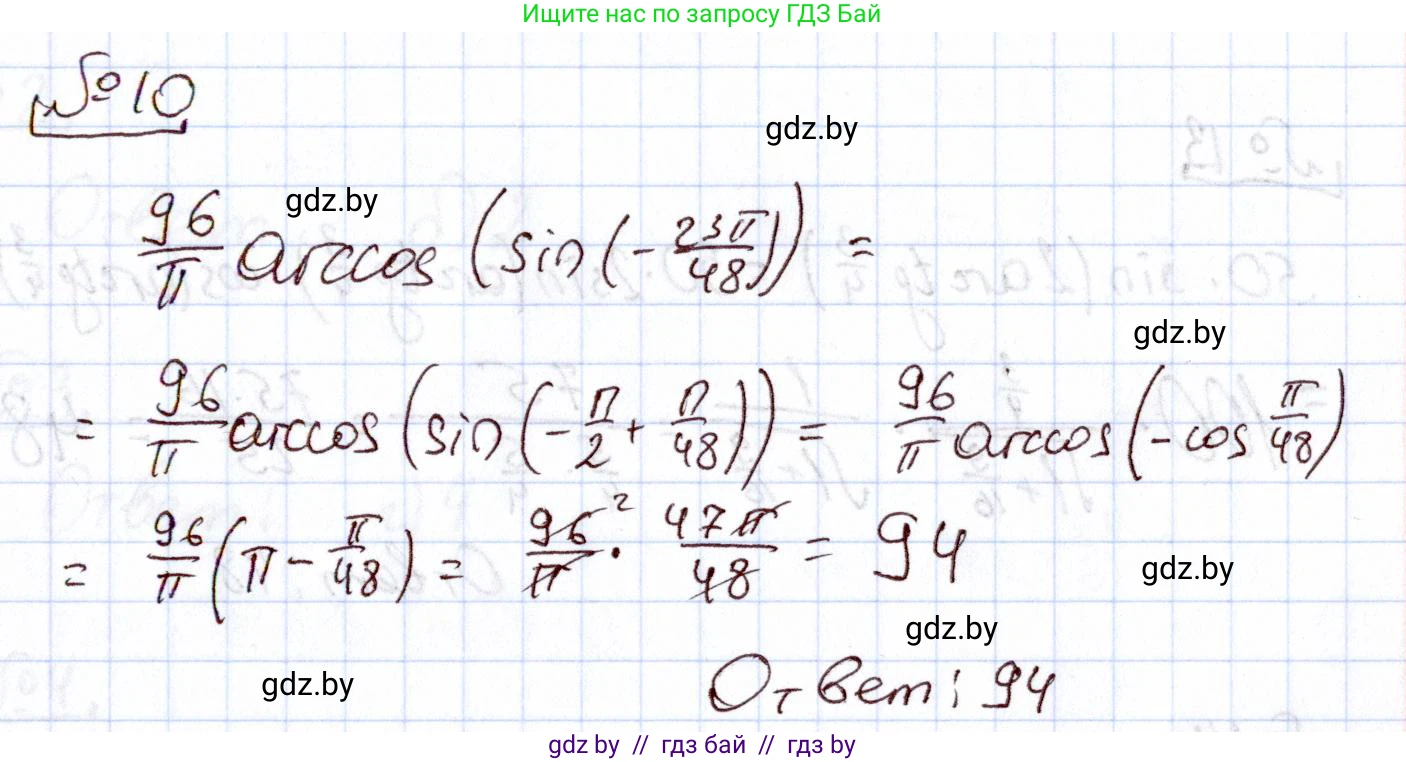 Ищите нас по запросу ГДЗ Бай
№10
gdz.by
gdz.by
96/π arccos (sin (-23π/48)) =
gdz.by
= 96/π arccos (sin (-π/2 + π/48)) = 96/π arccos (-cos π/48)
= 96/π (π - π/48) = 96²/π · 47π/48 = 94
gdz.by
gdz.by
gdz.by
Ответ: 94
gdz by // гдз бай // гдз by